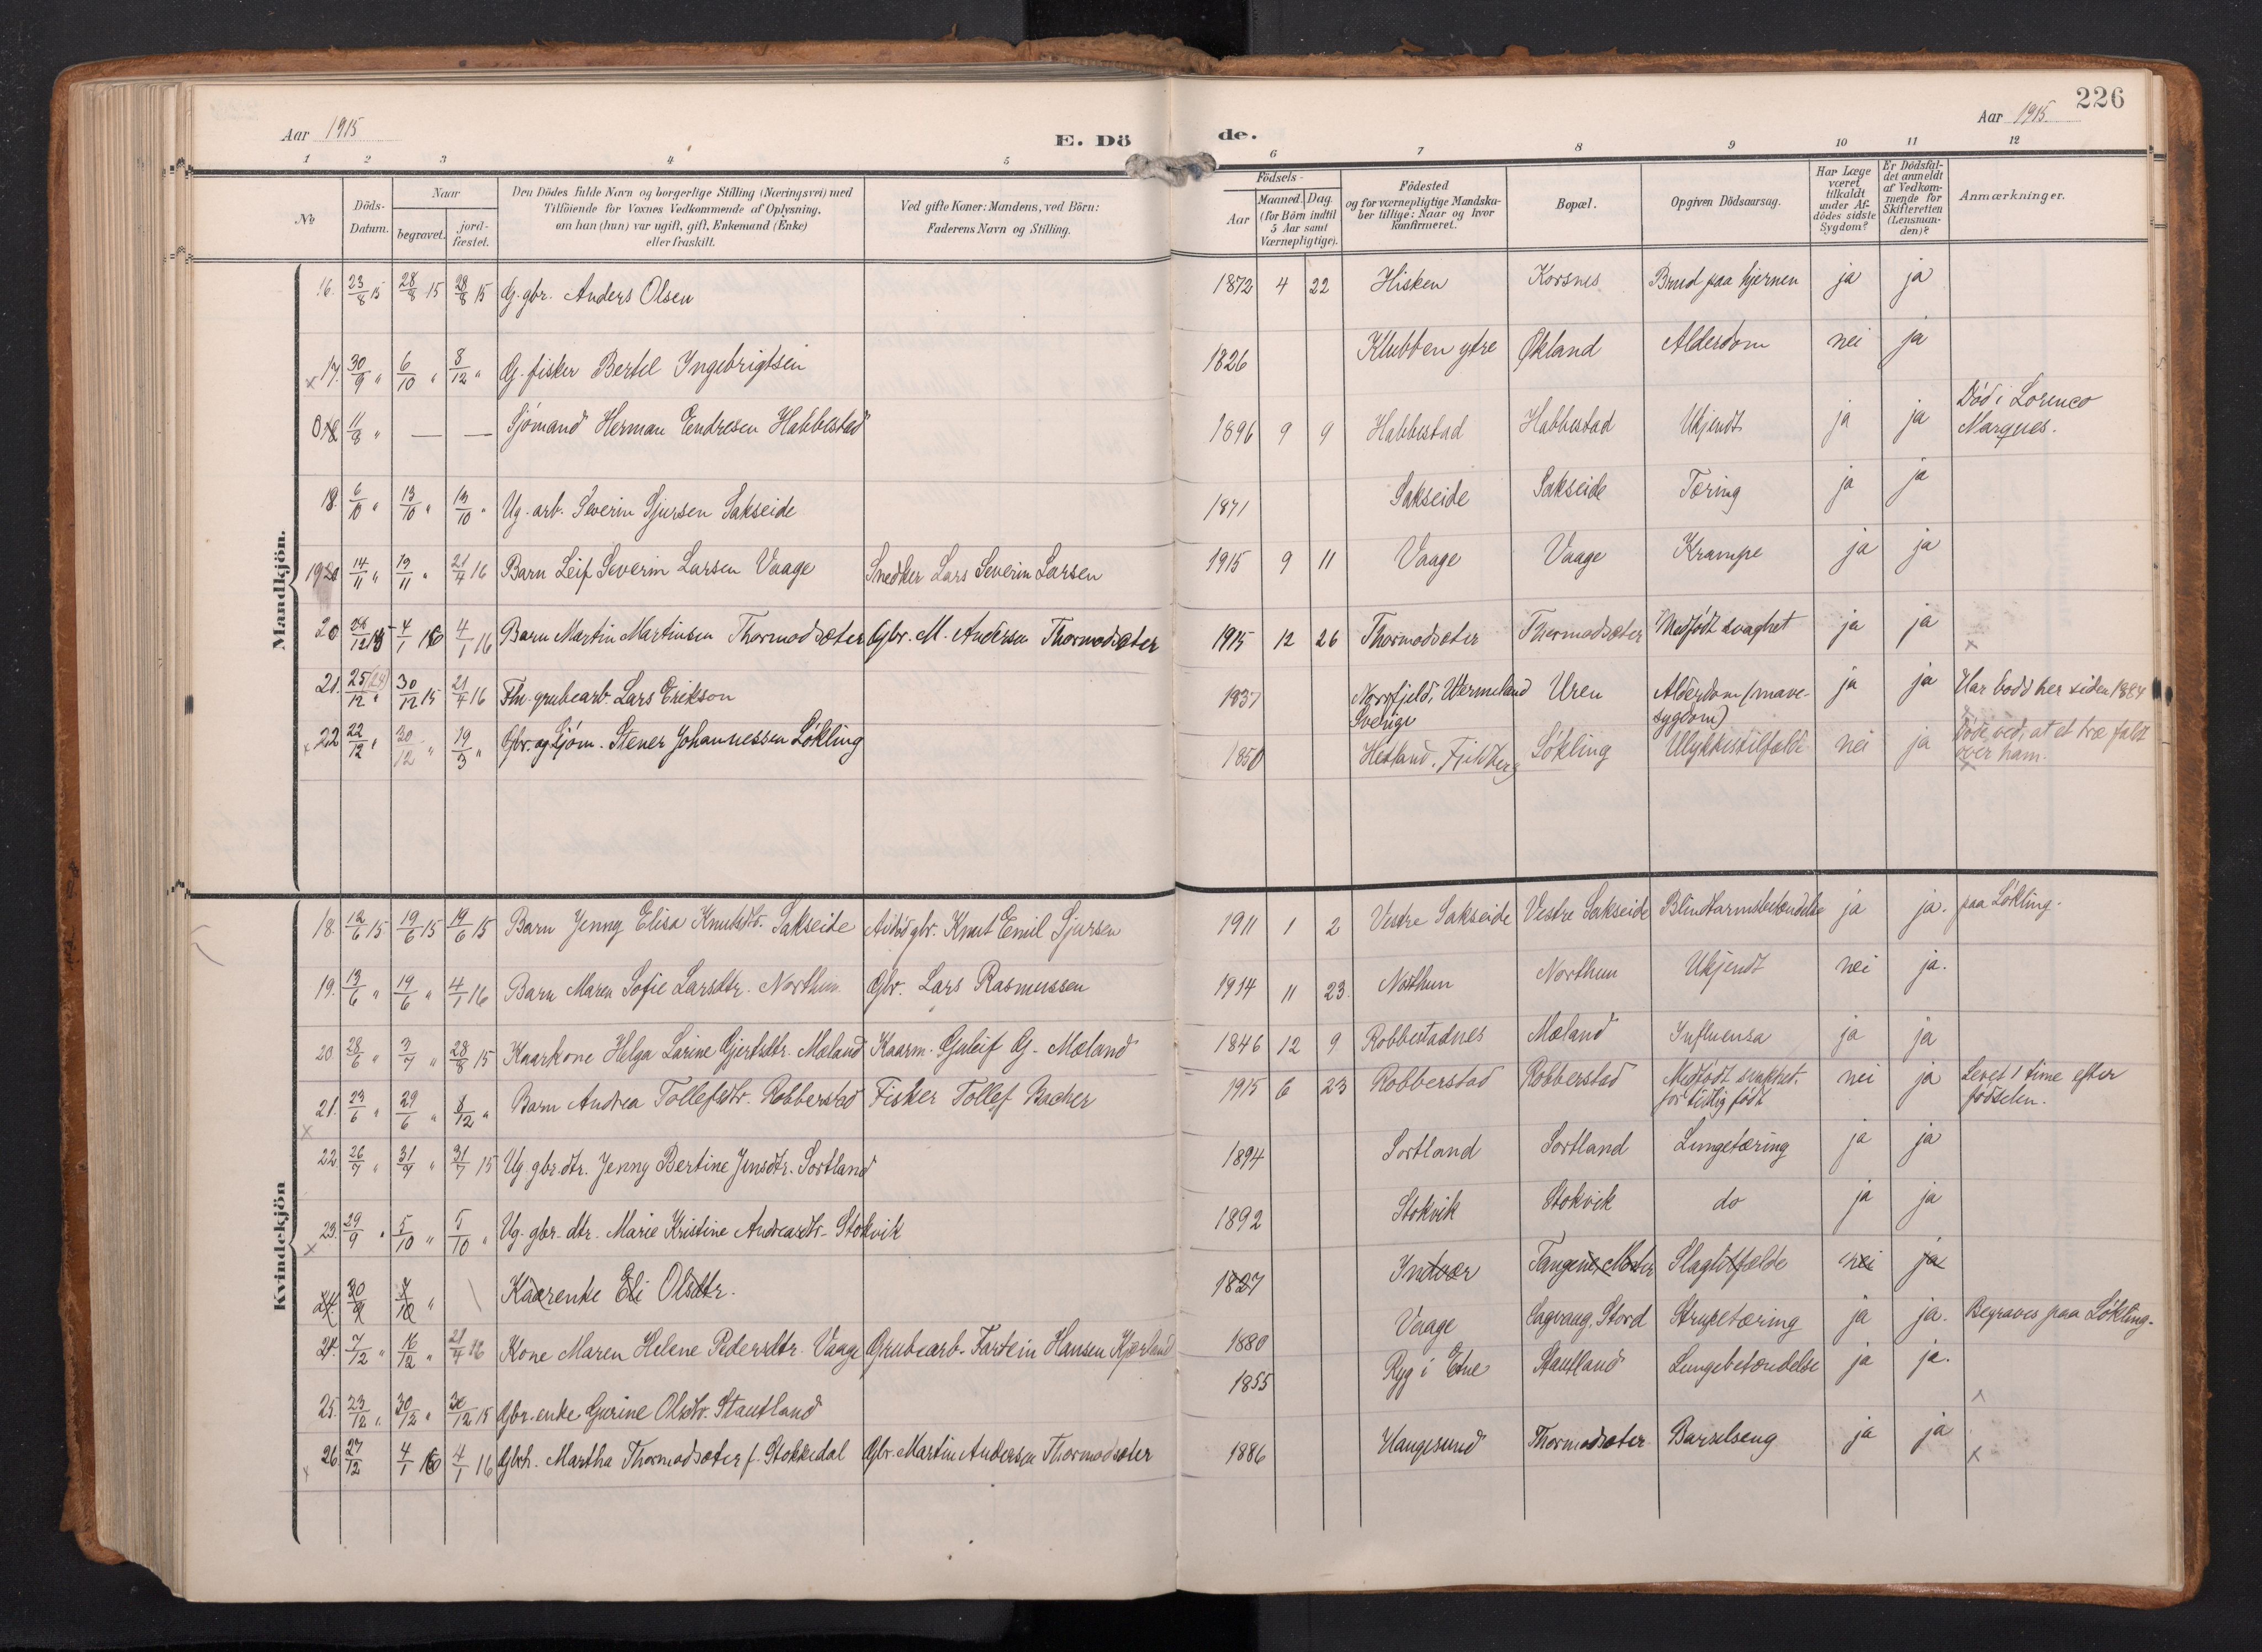 226
Aar 1915
E. Dö
de.
Aar 1915.
1 2 3 4 5 6 7 8 9 10 11 12
No
Döds-
Datum.
Naar
begravet.
jord-
fæstet.
Den Dödes fulde Navn og borgerlige Stilling (Næringsvei) med
Tilföiende for Voxnes Vedkommende af Oplysning,
om han (hun) var ugift, gift, Enkemand (Enke)
eller fraskilt.
Ved gifte Koner: Mandens, ved Börn:
Faderens Navn og Stilling.
Födsels-
Aar
Maaned. Dag.
(for Börn indtil
5 Aar samt
Værnepligtige).
Födested
og for værnepligtige Mandska-
ber tillige: Naar og hvor
konfirmeret.
Bopæl.
Opgiven Dödsaarsag.
Har Læge
været
tilkaldt
under Af-
dödes sidste
Sygdom?
Er Dödsfal-
det anmeldt
af Vedkom-
mende for
Skifteretten
(Lensman-
den)?
Anmærkninger.
Mandkjön.
16. 23/8 15 28/8 15 28/8 15 G. gbr. Anders Olsen 1872 4 22 Hisken Korsnes Brud paa hjernen ja ja
x 17. 30/9 " 6/10 " 8/12 " G. fisker Bertel Ingebrigtsen 1826 Klubben ytre Økland Alderdom nei ja
11/8 " — — Sjömand Herman Endresen Habbestad 1896 9 9 Habbestad Habbestad Ukjendt ja ja Död i Lorenco
Marques.
18. 6/10 " 13/10 " 13/10 " Ug. arb. Severin Sjursen Sakseide 1871 Sakseide Sakseide Tæring ja ja
19 14/11 " 19/11 " 21/4 16 Barn Leif Severin Larsen Vaage Snedker Lars Severin Larsen 1915 9 11 Vaage Vaage Krampe ja ja
20 4/1 16 4/1 16 Barn Martin Martinsen Thormodsæter Gbr. M. Andersen Thormodsæter 1915 12 26 Thormodsæter Thormodsæter Medfödt svaghet ja ja
x
21. 25/12 " 30/12 15 21/4 16 Fhv. grubearb. Lars Erikson 1837 Norrfjeld, Wermeland
Sverige Uren Alderdom (mave-
sygdom) ja ja Har bodd her siden 1884
x 22 22/12 " 30/12 " 19/3 " Gbr. og Sjöm. Stener Johannessen Lökling 1850 Hetland, Fjeldberg Lökling Ulykkestilfælde nei ja Döde ved, at et træ faldt
over ham.
Kvindekjön
18. 12/6 15 19/6 15 19/6 15 Barn Jenny Elisa Knutsdtr. Sakseide Avdöd gbr. Knut Emil Sjursen 1911 1 2 Vestre Sakseide Vestre Sakseide Blindtarmsbetændelse ja ja. paa Lökling.
19. 13/6 " 19/6 " 4/1 16 Barn Maren Sofie Larsdtr. Northun Gbr. Lars Rasmussen 1914 11 23. Northun Northun Ukjendt nei ja.
20 28/6 " 3/7 " 28/8 15 Kaarkone Helga Larine Gjertsdtr. Mæland Kaarm. Guleif G. Mæland 1846 12 9 Robbestadnes Mæland Influensa ja ja
x 21. 23/6 " 29/6 " 8/12 " Barn Andrea Tollefsdtr. Robberstad Fisker Tollef Bacher 1915 6 23 Robberstad Robberstad Medfödt svakhet.
for tidlig födt nei ja Levet 1 time efter
födselen.
22 26/7 " 31/7 " 31/7 15 Ug. gbr. dtr. Jenny Bertine Jensdtr. Sortland 1894 Sortland Sortland Lungetæring ja ja
x 23. 29/9 " 5/10 " 5/10 " Ug. gbr. dtr. Marie Kristine Andreasdtr. Stokvik 1892 Stokvik Stokvik do ja ja
24. 30/9 7/10 " Kaarenke Eli Olsdtr. 1827 Indvær Tangene, Moster Slagtilfælde nei ja
24. 7/12 " 16/12 " 21/4 16 Kone Maren Helene Pedersdtr. Vaage Grubearb. Fartein Hansen Kjærland 1880 Vaage Sagvaag, Stord Strupetæring ja ja. Begraves paa Lökling.
25. 23/12 " 30/12 " 30/12 15 Gbr. enke Gurine Olsdtr. Stautland 1855 Ryg i Etne Stautland Lungebetændelse ja ja.
x 26 27/12 4/1 16 4/1 16 Gbrh. Martha Thormodsæter f. Stokkedal Gbr. Martin Andersen Thormodsæter 1886 Haugesund Thormodsæter Barselseng ja ja
x